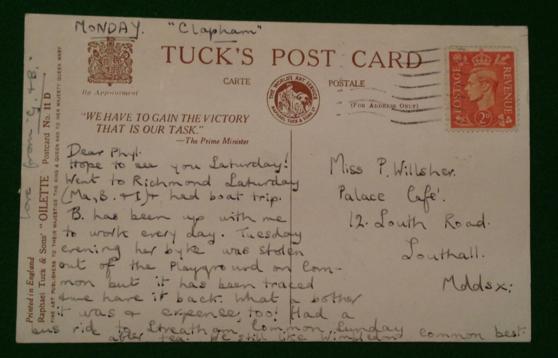 MONDAY. "Clapham"
TUCK'S POST CARD
CARTE POSTALE
By Appointment
(FOR ADDRESS ONLY)
POSTAGE REVENUE
2D
"WE HAVE TO GAIN THE VICTORY
THAT IS OUR TASK."
—The Prime Minister
Dear Phyl.
Hope to see you Saturday!
Went to Richmond Saturday
(Ma, B. & I) & had boat trip.
B. has been up with me
to work every day. Tuesday
evening her byke was stolen
out of the Playground on Com-
mon but it has been traced
& we have it back. What a bother
it was & expence, too! Had a
bus ride to Streatham Common Sunday
after tea. We still like Wimbledn common best.
Miss P. Willsher.
Palace Cafe'.
12. South Road.
Southall.
Mddsx:
love from "G. & B."
Printed in England
Raphael Tuck & Sons' "OILETTE" Postcard No. 11 D
FINE ART PUBLISHERS TO THEIR MAJESTIES THE KING & QUEEN AND TO HER MAJESTY QUEEN MARY